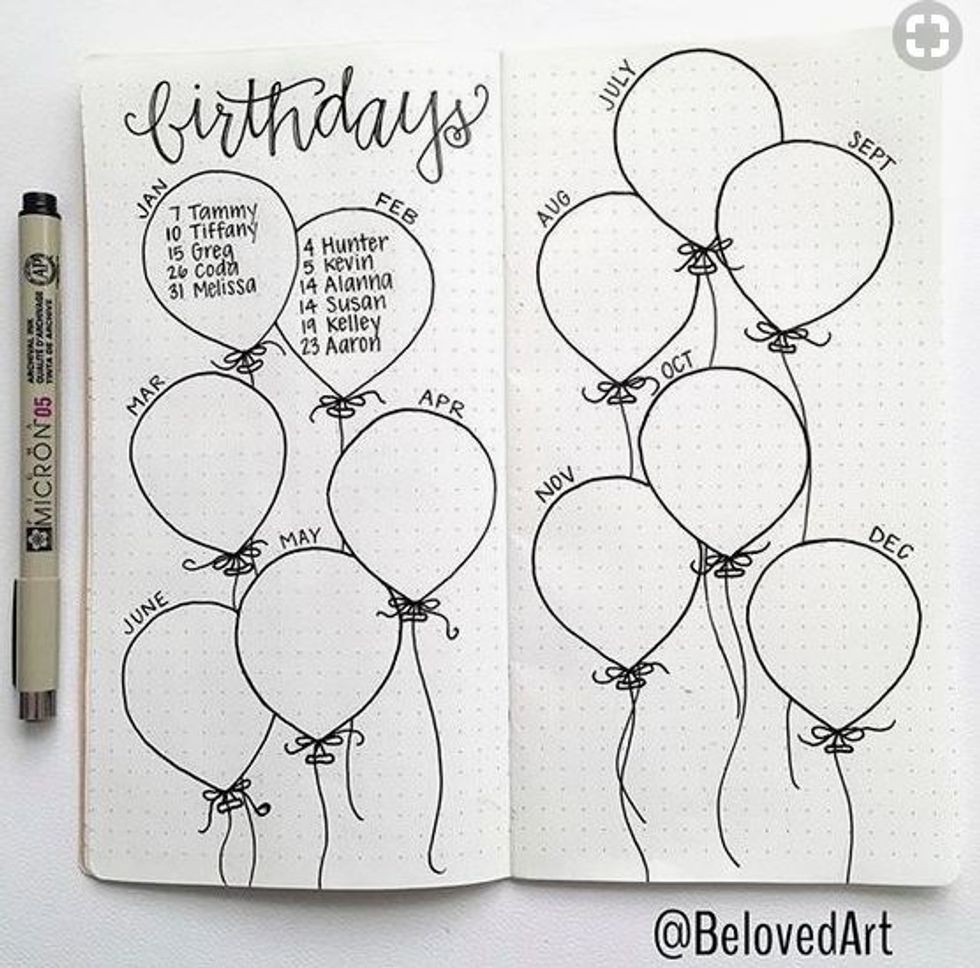 birthdays
JAN
7 Tammy
10 Tiffany
15 Greg
26 Coda
31 Melissa
FEB
4 Hunter
5 Kevin
14 Alanna
14 Susan
19 Kelley
23 Aaron
MAR
APR
MAY
JUNE
JULY
AUG
SEPT
OCT
NOV
DEC
AP
ARCHIVAL INK
QUALITÉ D'ARCHIVAGE
TINTA DE ARCHIVE
PIGMA
MICRON 05
@BelovedArt